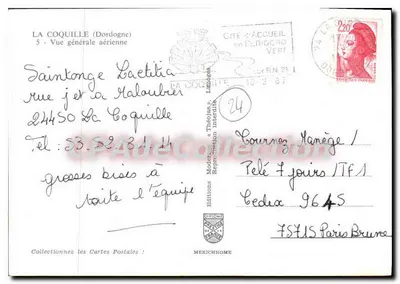 LA COQUILLE (Dordogne)
5 - Vue générale aérienne
Saintonge Laetitia
rue j et a Maloubier
24450 La Coquille
Tel : 53.52.81.14
grosses bises à
toute l'équipe
Collectionnez les Cartes Postales !
MEXICHROME
CITE D'ACCUEIL
en PERIGORD
VERT
LA COQUILLE
2,20
24
Tournez Manège /
Télé 7 jours / TF1
Cedex 9645
75715 Paris Brune